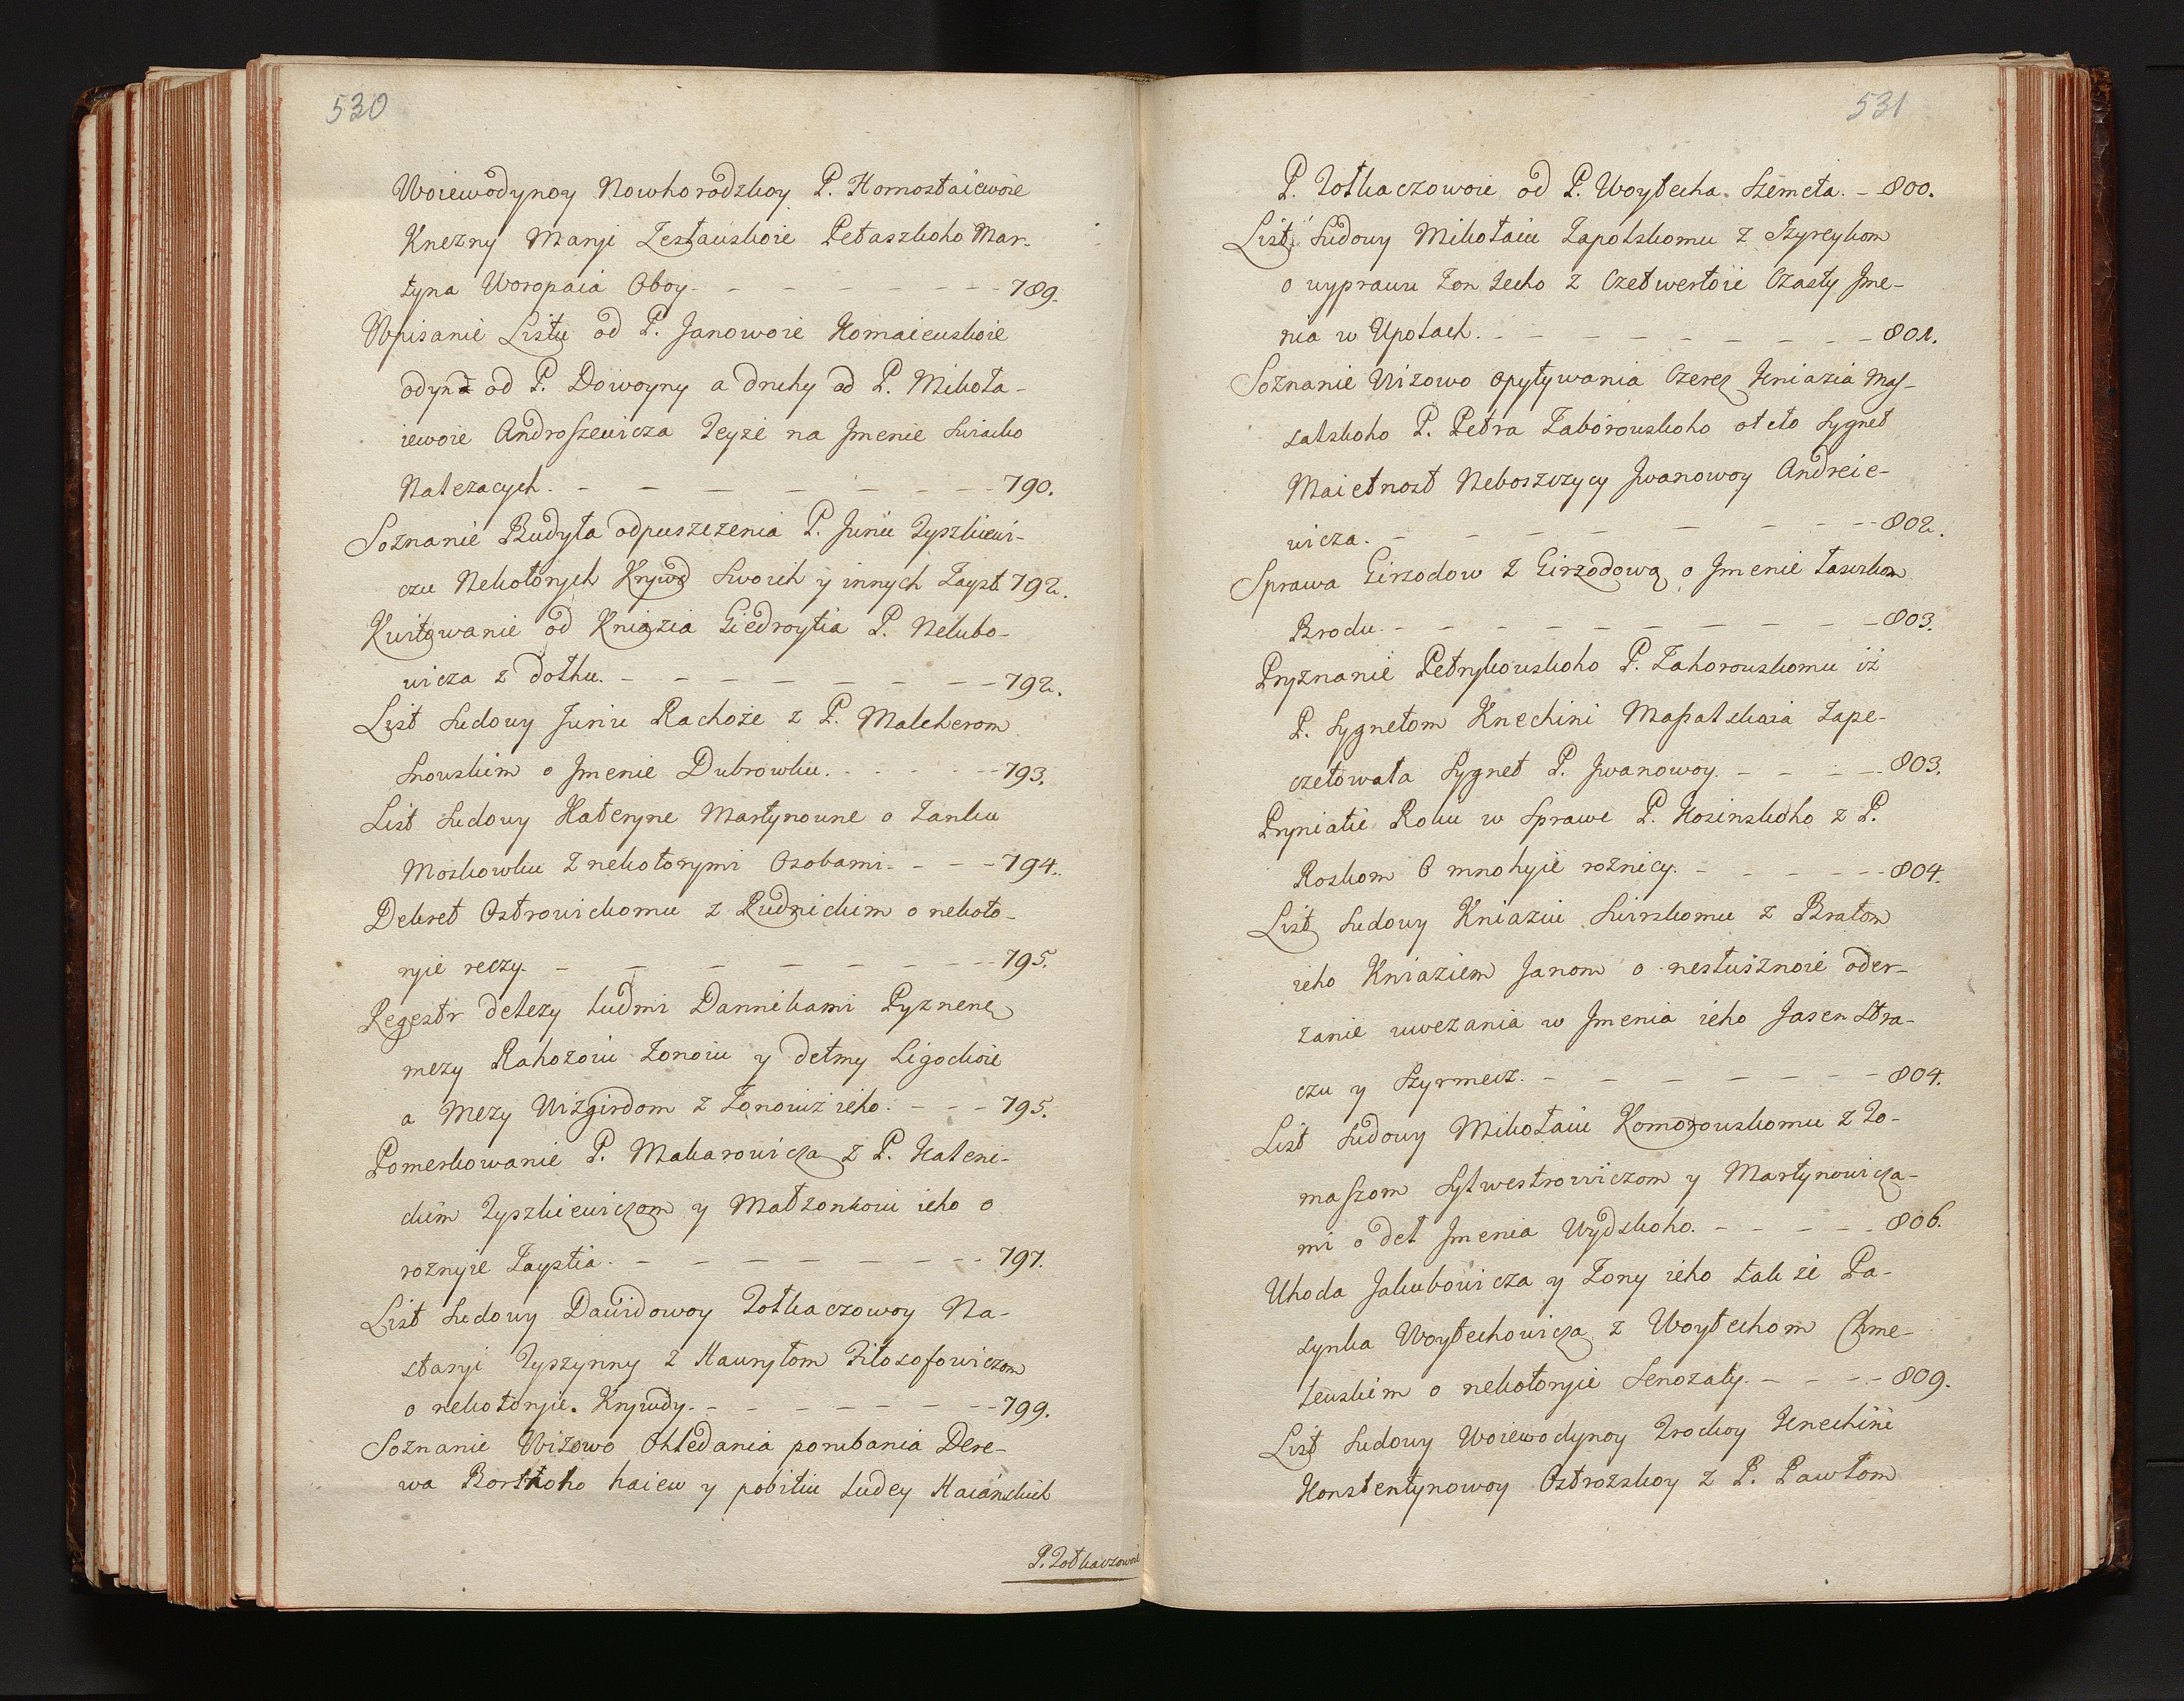 530
Woiewodynoy Nowhorodzkoy P. Hornostaiewoie
Knezny Maryi Zesławskoie Petaszkoho Mar-
tyna Woropaia Oboy. - - - - - - - - 789.
Wpisanie Listu od P. Janowoie Komaiewskoie
odyn od P. Dowoyny a druhy od P. Mikoła-
iewoie Androszewicza Teyże na Jmenie Swiacko
Należacych. - - - - - - - - 790.
Soznanie Budyła odpuszczenia P. Juriu Tyszkiewi-
czu Nekotorych Krywd Swoich y innych Zayst. 792.
Kwitowanie od Kniazia Giedroytia P. Nelubo-
wicza z dołhu. - - - - - - - - 792.
List Sudowy Juriu Rachoże z P. Malcherom
Snowskim o Jmenie Dubrowku. - - - - - 793.
List Sudowy Kateryne Martynowne o Zamku
Moskowku z nekotorymi Osobami. - - - 794.
Dekret Ostrowickomu z Rudnickim o nekoto-
ryie reczy. - - - - - - - - 795.
Regestr delezy ludmi Dannikami Pyznene
mezy Rahozoiu Zonoiu y detmy Ligockoie
a Mezy Wizgirdom z Zonoiuż ieho. - - - 795.
Pomerkowanie P. Makarowicza z P. Kaleni-
ckim Tyszkiewiczom y Małzonkoiu ieho o
roznyie Zaystia. - - - - - - - - 797.
List Sudowy Dawidowoy Tołkaczowoy Na-
staryi Tyszynny z Hawryłom Fiłosofowiczom
o nekotoryie Krywdy. - - - - - - - 799.
Soznanie Wizowo Ohledania porubania Dere-
wa Bortnoho haiew y pobitiu ludey Haianskich
P. Tołkaczowoie
531
P. Tołkaczowoie od P. Woytecha Szemeta. - 800.
List Sudowy Mikołaiu Zapolskomu z Szyreykom
o wyprawu Zon Jeho z Czetwertoie Czasty Jme-
nia w Upołach. - - - - - - - - 801.
Soznanie Wizowo opytywania Czerez Kniazia Mas-
salskoho P. Petra Zaborowskoho oteto Sygnet
Maietnost Neboszczycy Jwanowoy Andreie-
wicza. - - - - - - - - 802.
Sprawa Girzodow z Girzodowa o Jmenie Laswkom
Brodu. - - - - - - - - - 803.
Pryznanie Petrykowskoho P. Zahorowskomu iż
P. Sygnetom Knechini Massalskaia Zape-
czetowała Sygnet P. Jwanowoy. - - - - 803.
Pryniatie Roku w Sprawe P. Kosinskoho z P.
Roskom O mnohyie roznicy. - - - - - 804.
List Sudowy Kniaziu Swirskomu z Bratom
ieho Kniaziem Janom o nesłusznoie oder-
zanie uwezania w Jmenia ieho Jasen Stra-
czu y Szyrmecz. - - - - - - - 804.
List Sudowy Mikołaiu Komorowskomu z To-
maszom Sylwestrowiczom y Martynowicza-
mi o deł Jmenia Wydzkoho. - - - - - 806.
Uhoda Jakubowicza y Zony ieho tak że Pa-
synka Woytechowicza z Woytechom Chme-
lewskim o nekotoryie Senozaty. - - - - 809.
List Sudowy Woiewodynoy Trockoy Knechini
Konstentynowoy Ostrozskoy z P. Pawłom